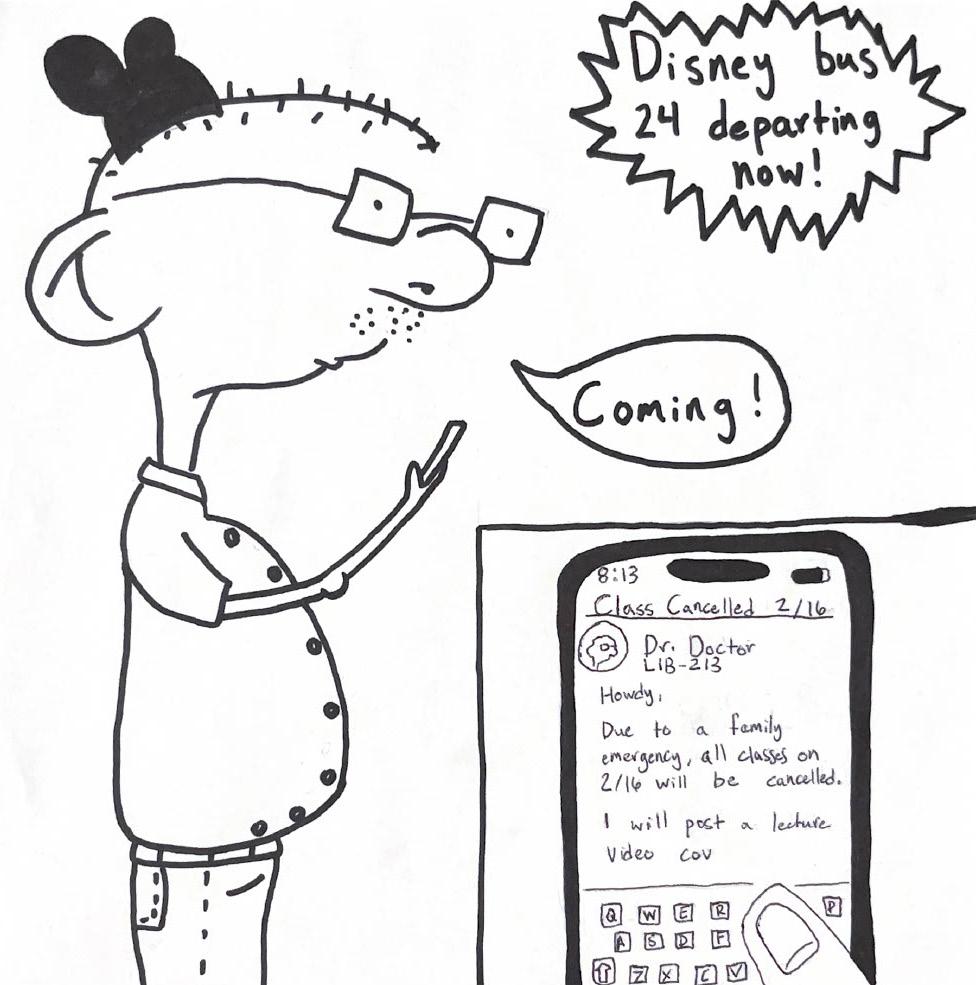 Disney bus
24 departing
now!
Coming!
8:13
Class Cancelled 2/16
Dr. Doctor
LIB-213
Howdy,
Due to a family
emergency, all classes on
2/16 will be cancelled.
I will post a lecture
video cov
Q W E R P
A S D F
Z X C V